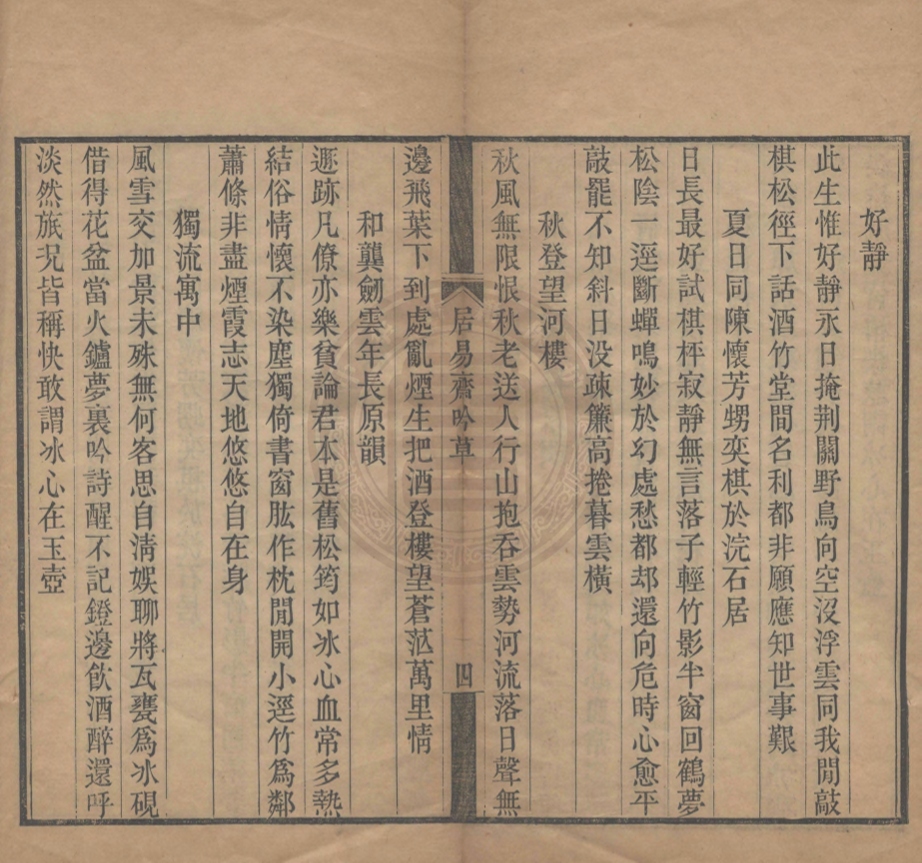 好靜
此生惟好靜永日掩荆關野鳥向空沒浮雲同我閒敲
棋松徑下話酒竹堂間名利都非願應知世事艱
夏日同陳懷芳甥奕棋於浣石居
日長最好試棋枰寂靜無言落子輕竹影半窗回鶴夢
松陰一逕斷蟬鳴妙於幻處愁都却還向危時心愈平
敲罷不知斜日没疎簾高捲暮雲橫
秋登望河樓
秋風無限恨秋老送人行山抱吞雲勢河流落日聲無
居易齋吟草
四
邊飛葉下到處亂煙生把酒登樓望蒼茫萬里情
和龔劒雲年長原韻
遯跡凡僚亦樂貧論君本是舊松筠如冰心血常多熱
結俗情懷不染塵獨倚書窗肱作枕閒開小逕竹爲鄰
蕭條非盡煙霞志天地悠悠自在身
獨流寓中
風雪交加景未殊無何客思自清娛聊將瓦甕爲冰硯
借得花盆當火鑪夢裏吟詩醒不記鐙邊飲酒醉還呼
淡然旅況皆稱快敢謂冰心在玉壺